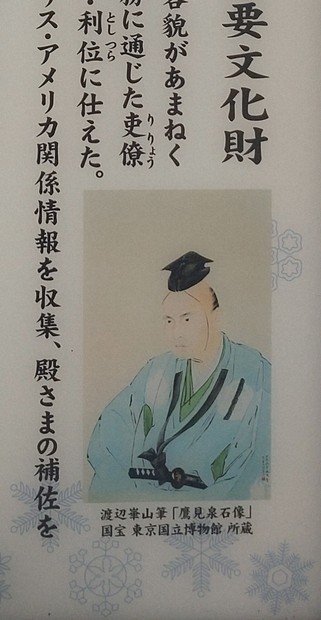 要文化財
容貌があまねく
務に通じた吏僚
りりょう
・利位に仕えた。
としつら
リス・アメリカ関係情報を収集、殿さまの補佐を
渡辺崋山筆「鷹見泉石像」
国宝 東京国立博物館 所蔵